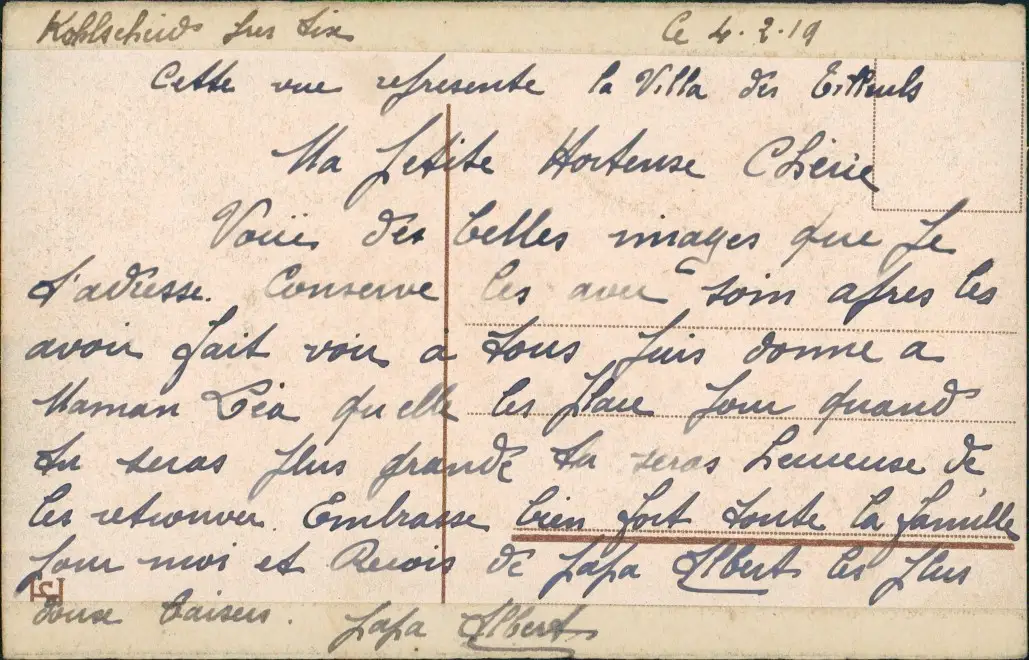 Kohlscheid pres Aix Ce 4.2.19
Cette vue represente la Villa des Tilleuls
Ma petite Hortense Chérie
Voici des belles images que je
t'adresse. Conserve les avec soin apres les
avoir fait voir a tous puis donne a
Maman Léa qu elle les place pour quand
tu seras plus grande tu seras heureuse de
les retrouver. Embrasse bien fort toute la famille
pour moi et Recois de papa Albert les plus
doux baisers. papa Albert